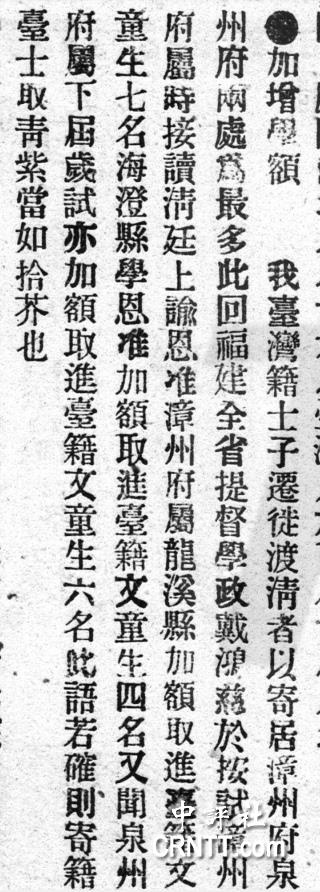 ●加增學額　　我臺灣籍士子遷徙渡淸者以寄居漳州府泉
州府兩處爲最多此回福建全省提督學政戴鴻慈於按試漳州
府屬時接讀淸廷上諭恩准漳州府屬龍溪縣加額取進臺籍文
童生七名海澄縣學恩准加額取進臺籍文童生四名又聞泉州
府屬下屆歲試亦加額取進臺籍文童生六名此語若確則寄籍
臺士取靑紫當如拾芥也
中評社
CRNTT.com